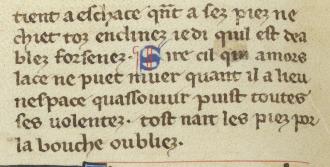 tient a eschace qñt a ses piez ne
chiet toz enclinez ie di quil est dea
blez forsenez. Sire cil qui amors
lace ne puet muer quant il a lieu
nespace quassouuir puist toutes
ses volentez. tost nait les piez por
la bouche oubliez.